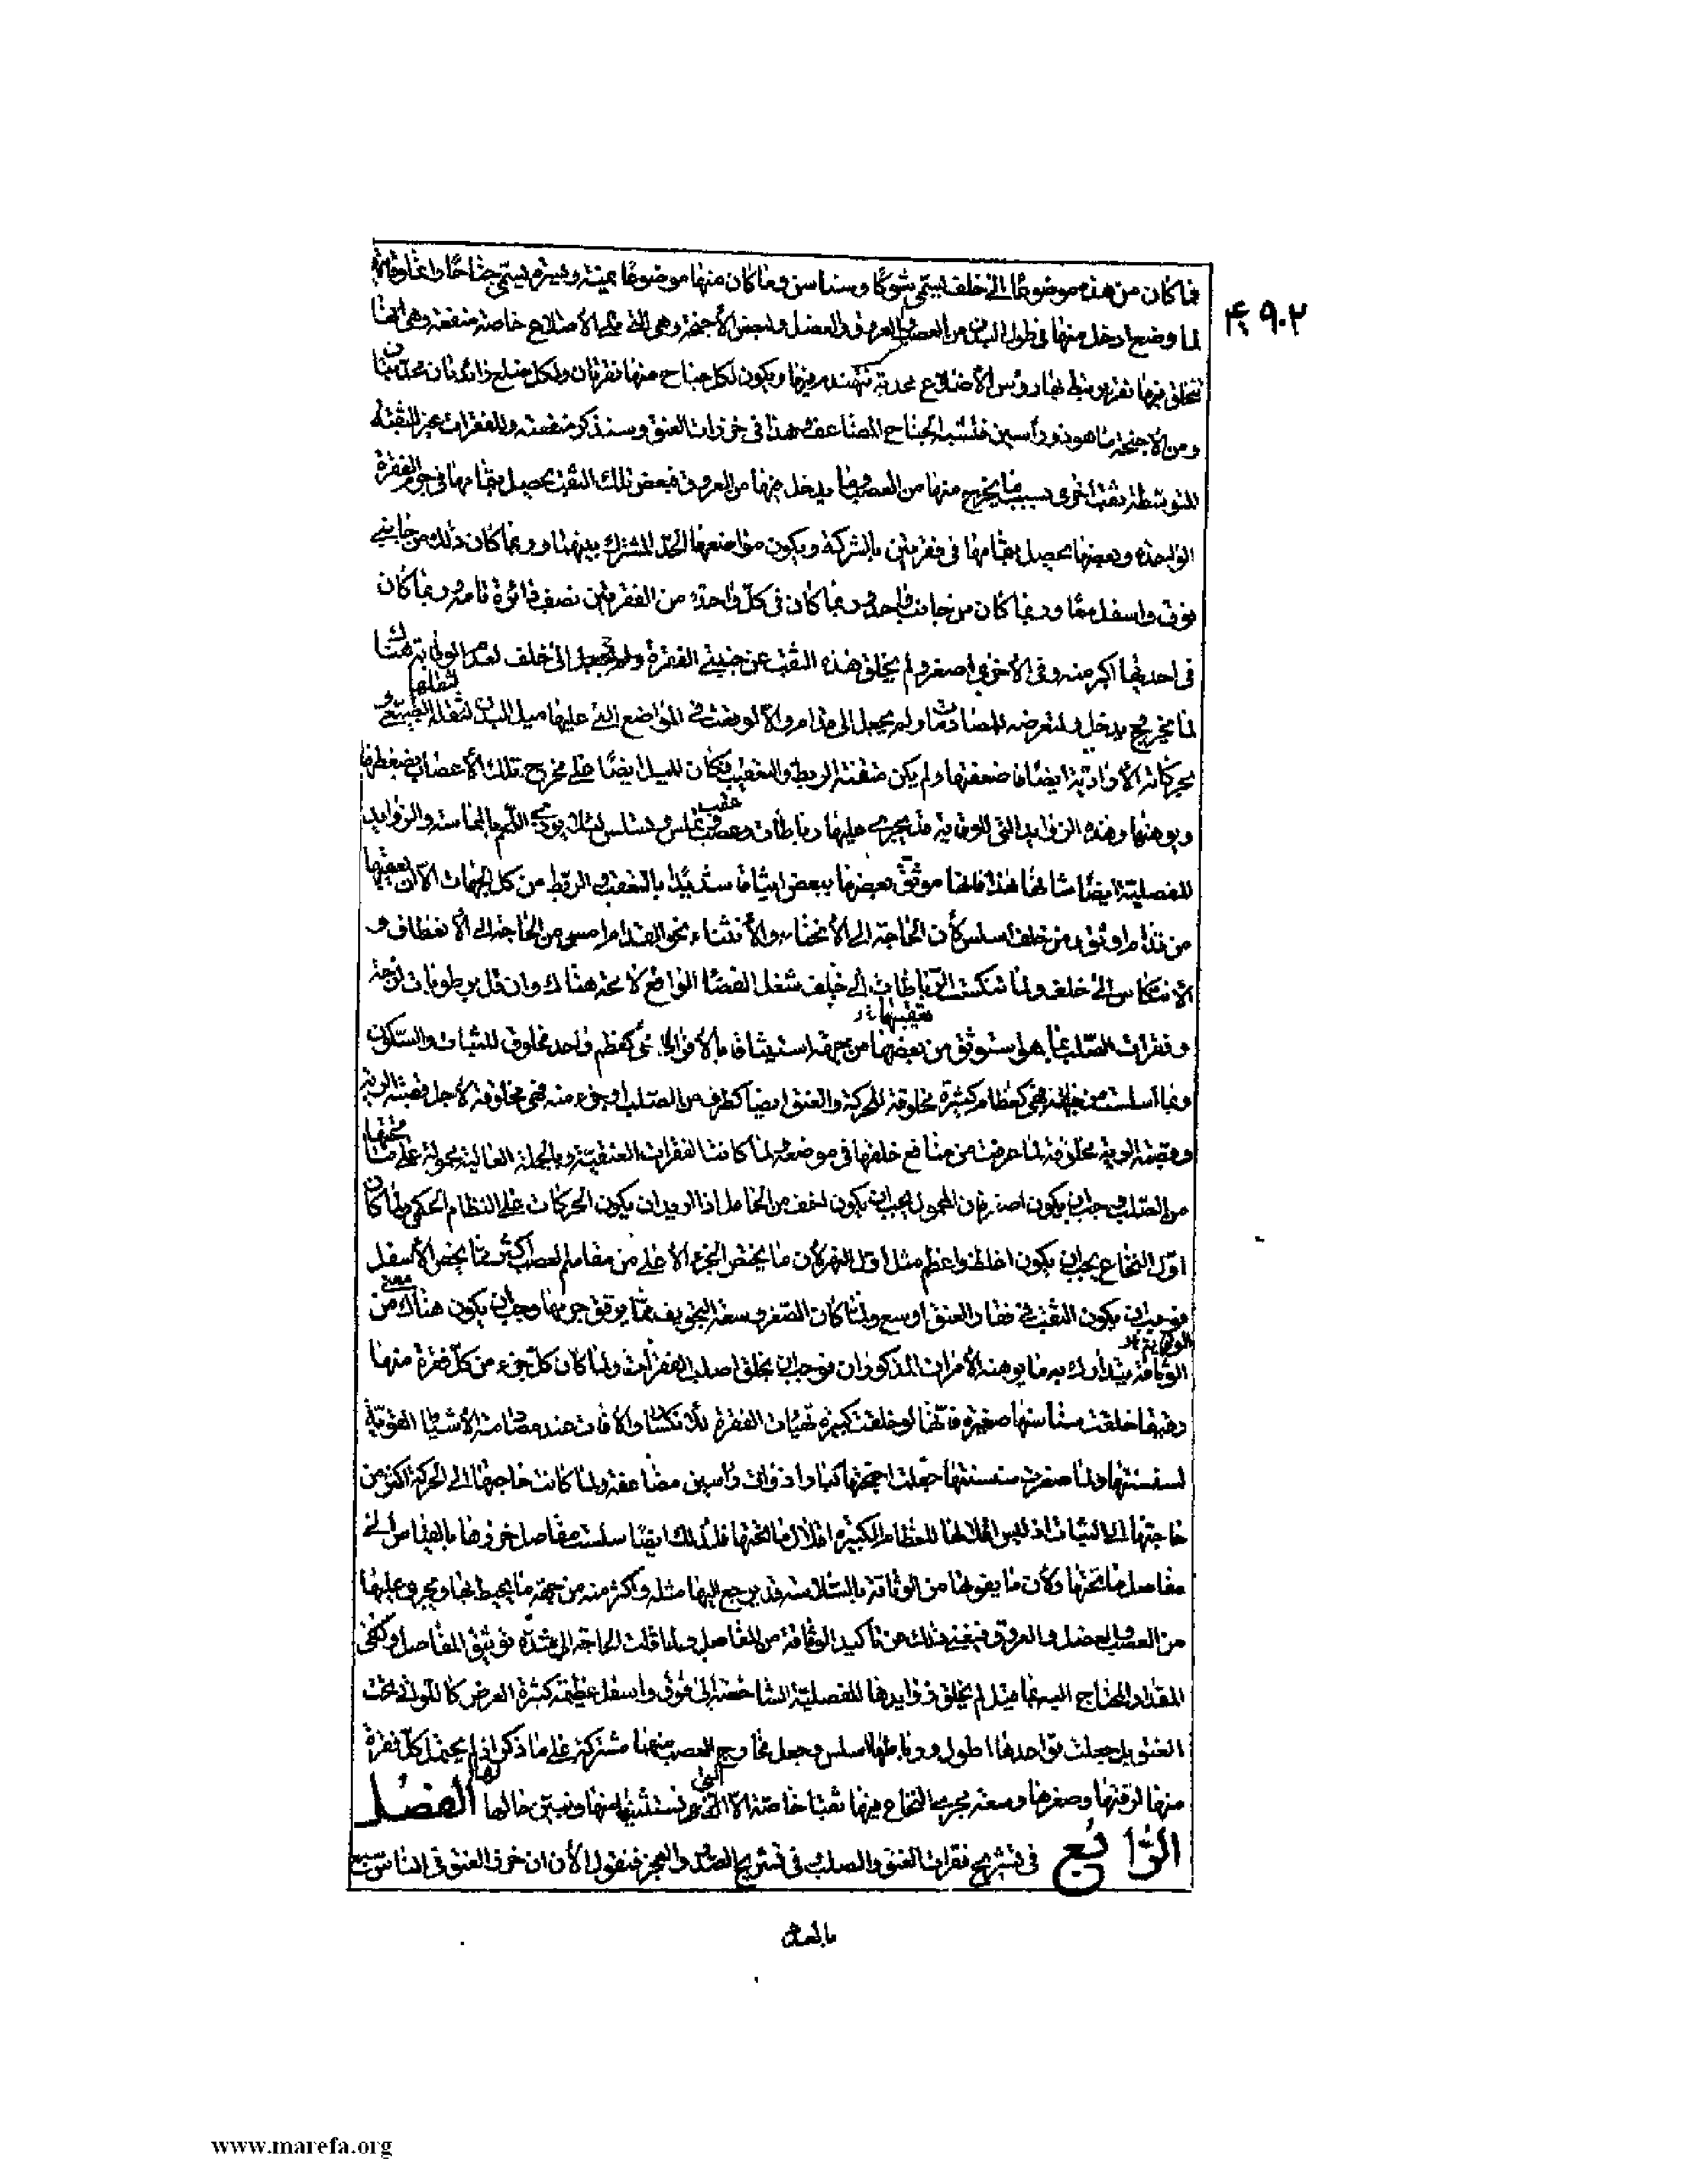 فما كان من هذه موضوعا الى خلف يسمى شوكا وسناسن وما كان منها موضوعا يمنة ويسرة يسمى جناحا وانما وقايته
لما وضع ادخل منها فى طول البدن من العصب والعروق والعضل ولبعض الأجنحة وهى التى تلى الأضلاع خاصة منفعة وهى انها
تتخلق فيها نقر يرتبط بها رؤس الأضلاع محدبة تتهندم فيها ويكون لكل جناح منها نقرتان ولكل ضلع زائدتان محدبتان
ومن الأجنحة ما هو ذو رأسين فيشبه الجناح المضاعف وهذا فى خرزات العنق وسنذكر منفعته وللفقرات غير الثقبة
المتوسطة ثقب اخرى بسبب ما يخرج منها من العصب وما يدخل فيها من العروق فبعض تلك الثقب يحصل بتمامها فى جرم الفقرة
الواحدة وبعضها يحصل بتمامها فى فقرتين بالشركة ويكون مواضعها الحد المشترك بينهما وربما كان ذلك من جانبى
فوق واسفل معا وربما كان من جانب واحد وربما كان فى كل واحدة من الفقرتين نصف دائرة تامة وربما كان
فى احديهما اكبر منه وفى الأخرى اصغر ولم يخلق هذه الثقب عن جنبتى الفقرة ولم تجعل الى خلف لعدم الوقاية هناك
لما يخرج ويدخل ولتعرضه للمصادمات ولم يجعل الى قدام والا لوقعت فى المواضع التى عليها ميل البدن لثقله الطبيعى و
بحركاته الأرادية ايضا فاضعفتها ولم يكن متقنة الربط والتعقيب فكان الميل ايضا على مخرج تلك الأعضاب يضغطها
ويوهنها وهذه الزوايد التى للوقاية قد يجرى عليها رباطات وعصب تملس وتسلس لئلا يوذى اللحم بالمماسة والزوايد
المفصلية ايضا شانها هذا فانها موثق بعضها ببعض ايثاقا شديدا بالتعقيب والربط من كل الجهات الا ان تعقيبها
من قدام اوثق ومن خلف اسلس لأن الحاجة الى الأنحناء والأنثناء نحو القدام امس من الحاجة الى الأنعطاف و
الأنتكاس الى خلف ولما سلست الرباطات الى خلف شغل الفضا الواقع لا محة هناك وان قل برطوبات لزجة
وفقرات الصلب بما هى استوثق من بعضها من جهة استيثاقا بالأفراط هى كعظم واحد مخلوق للثبات والسكون
وبما اسلست من جهة هى كعظام كثيرة مخلوقة للحركة والعنق ايضا كطرف من الصلب او جزء منه فهى مخلوقة لأجل قصبة الرية
وقصبة الرية مخلوقة لما عرفت من منافع خلقها فى موضعه ولما كانت الفقرات العنقية وبالجملة العالية محمولة على ما تحتها
من الصلب وجب ان يكون اصغر فان المحمول يجب ان يكون اخف من الحامل اذا اريد ان يكون الحركات على النظام الحكمى ولما كان
اول النخاع يجب ان يكون اغلظ واعظم مثل اول النهر لأن ما يخص الجزء الأعلى من مقاسم العصب اكثر مما يخص الأسفل
وجب ان يكون الثقب فى فقار العنق اوسع ولما كان الصغر وسعة التجويف مما يرقق جرمها وجب ان يكون هناك معنى من
الوثاقة يتدارك به ما يوهنه الأمران المذكوران فوجب ان يخلق اصلب الفقرات ولما كان كل جزء من كل فقرة منها
رقيقا خلقت سناسنها صغيرة فانها لو خلقت كبيرة تهيأت الفقرة للأنكسار والأفات عند مصادمة الأشياء القوية
لسنسنتها ولما صغرت سنسنتها جعلت اجنحتها كبارا ذوات رأسين مضاعفة ولما كانت حاجتها الى الحركة اكثر من
حاجتها الى الثبات اذ ليس اقلالها للعظام الكثيرة اقلال ما تحتها فلذلك ايضا سلست مفاصل خرزها بالقياس الى
مفاصل ما تحتها ولأن ما يفوتها من الوثاقة بالسلاسة قد يرجع اليها مثله واكثر منه من جهة ما يحيط بها ويجرى عليها
من العصب والعضل والعروق فيغنى ذلك عن تأكيد الوثاقة من المفاصل ولما قلت الحاجة الى شدة توثيق المفاصل وكفى
المقدار المحتاج اليه بما فيه لم يخلق زوايدها المفصلية الشاخصة الى فوق واسفل عظيمة كثيرة العرض كاللواتى تحت
العنق بل جعلت قواعدها اطول ورباطها اسلس وجعل مخارج العصب منها مشتركة على ما ذكر اذ لم يحتمل كل فقرة
منها لرقتها وصغرها وسعة مجرى النخاع فيها ثقبا خاصة الا التى نستثنيها منها ونبين حالها الفصل
الرابع فى تشريح فقرات العنق والصلب فى تشريح الصدر والعجز فنقول الأن ان خرز العنق فى الناس سبع
بالعدد
www.marefa.org